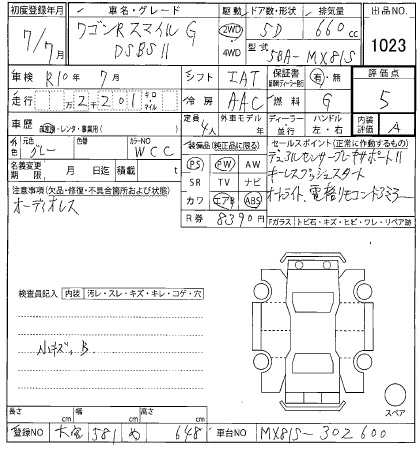 初度登録年月 車名・グレード 駆動 ドア数・形状 排気量 出品NO
7/7月 ワゴンRスマイル G DSBSⅡ 2WD 4WD 5D 660cc 1023
型式 5BA-MX81S
車検 R10年 7月 シフト IAT 保証書 有・無 評価点
走行 万2千201 キロ マイル 冷房 AAC 燃料 G 5
車歴 自家用・レンタ・事業用( ) 定員 4人 外車モデル 年 ディーラー 並行 ハンドル 左・右 内装評価 A
外色 元色 グレー 色替 カラーNO WCC
装備品(純正品に限る) セールスポイント(正常に作動するもの)
名義変更期限 月 日 積載 t
PS PW AW
デュアルセンサーブレーキサポートⅡ
注意事項(欠品・修復・不具合箇所および状態)
SR TV ナビ
キーレスプッシュスタート
オーディオレス
カワ エアB ABS
オートライト、電格リモコンドアミラー
R券 8390円
Fガラス トビ石・キズ・ヒビ・ワレ・リペア跡
検査員記入 内装 汚レ・スレ・キズ・キレ・コゲ・穴
小キズ、B
スペア
長さ cm 幅 cm 高さ cm
登録NO 大宮 581 め 648 車台NO MX81S-302600